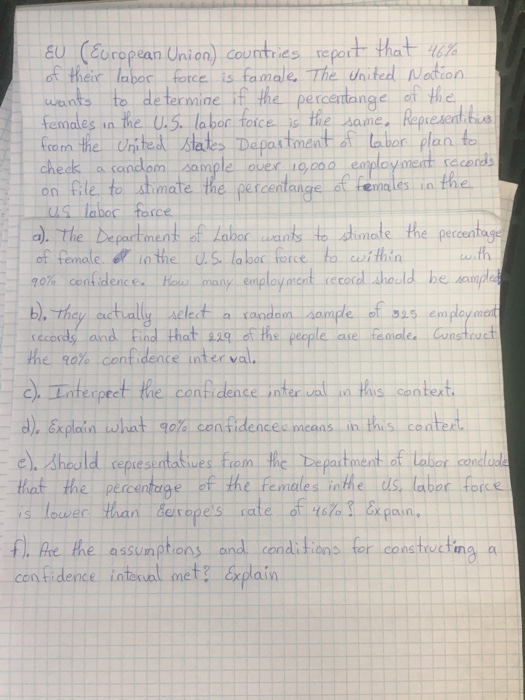 EU (European Union) countries report that 46%
of their labor force is famale. The United Nation
wants to determine if the percentange of the
females in the U.S. labor force is the same. Representitives
from the United States Department of Labor plan to
check a random sample over 10,000 employment records
on file to stimate the percentange of females in the
US labor force
a). The Department of Labor wants to stimate the percentage
of female in the U.S. labor force to within with
90% confidence. How many employment record should be sampled
b). They actually select a random sample of 525 employment
records, and find that 229 of the people are female. Construct
the 90% confidence interval.
c). Interpect the confidence interval in this context.
d). Explain what 90% confidencec means in this context.
e). Should representatives from the Department of Labor conclude
that the percentage of the females inthe US, labor force
is lower than Europe's rate of 46%? Expain.
f). Are the assumptions and conditions for constructing a
confidence interval met? Explain